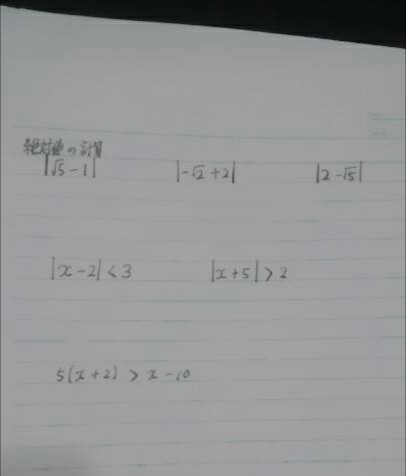 絶対値の計算
|√5-1| |-√2+2| |2-√5|
|x-2|<3 |x+5|>2
5(x+2)>x-10